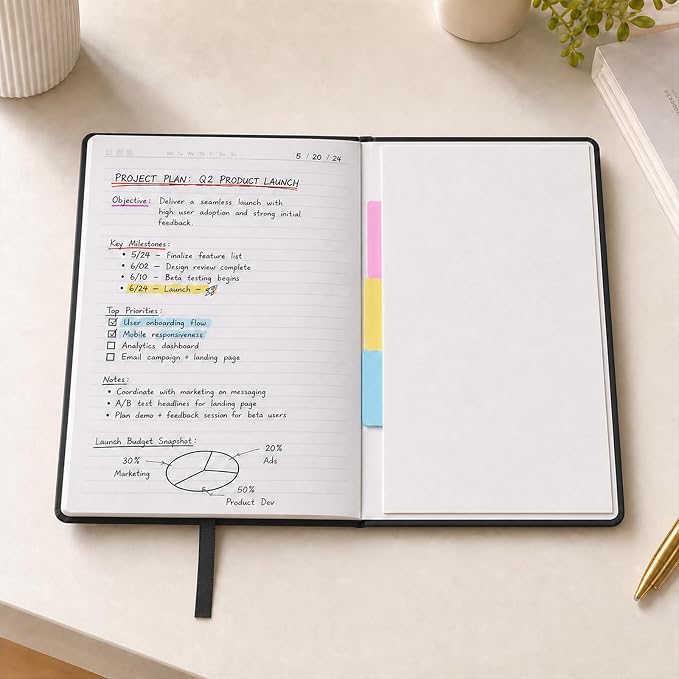 Mo Tu We Th Fr Sa Su
5 / 20 / 24
PROJECT PLAN: Q2 PRODUCT LAUNCH
Objective: Deliver a seamless launch with
high user adoption and strong initial
feedback.
Key Milestones:
• 5/24 – Finalize feature list
• 6/02 – Design review complete
• 6/10 – Beta testing begins
• 6/24 – Launch –
Top Priorities:
☑ User onboarding flow
☑ Mobile responsiveness
☐ Analytics dashboard
☐ Email campaign + landing page
Notes:
• Coordinate with marketing on messaging
• A/B test headlines for landing page
• Plan demo + feedback session for beta users
Launch Budget Snapshot:
20%
Ads
30%
Marketing
50%
Product Dev